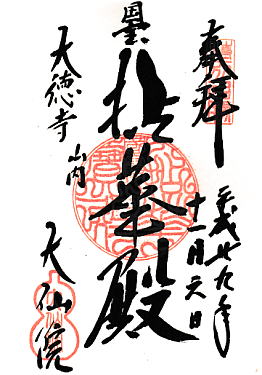 奉拝
平成廿九年
十一月六日
拈華殿
大徳寺
山内
大仙院